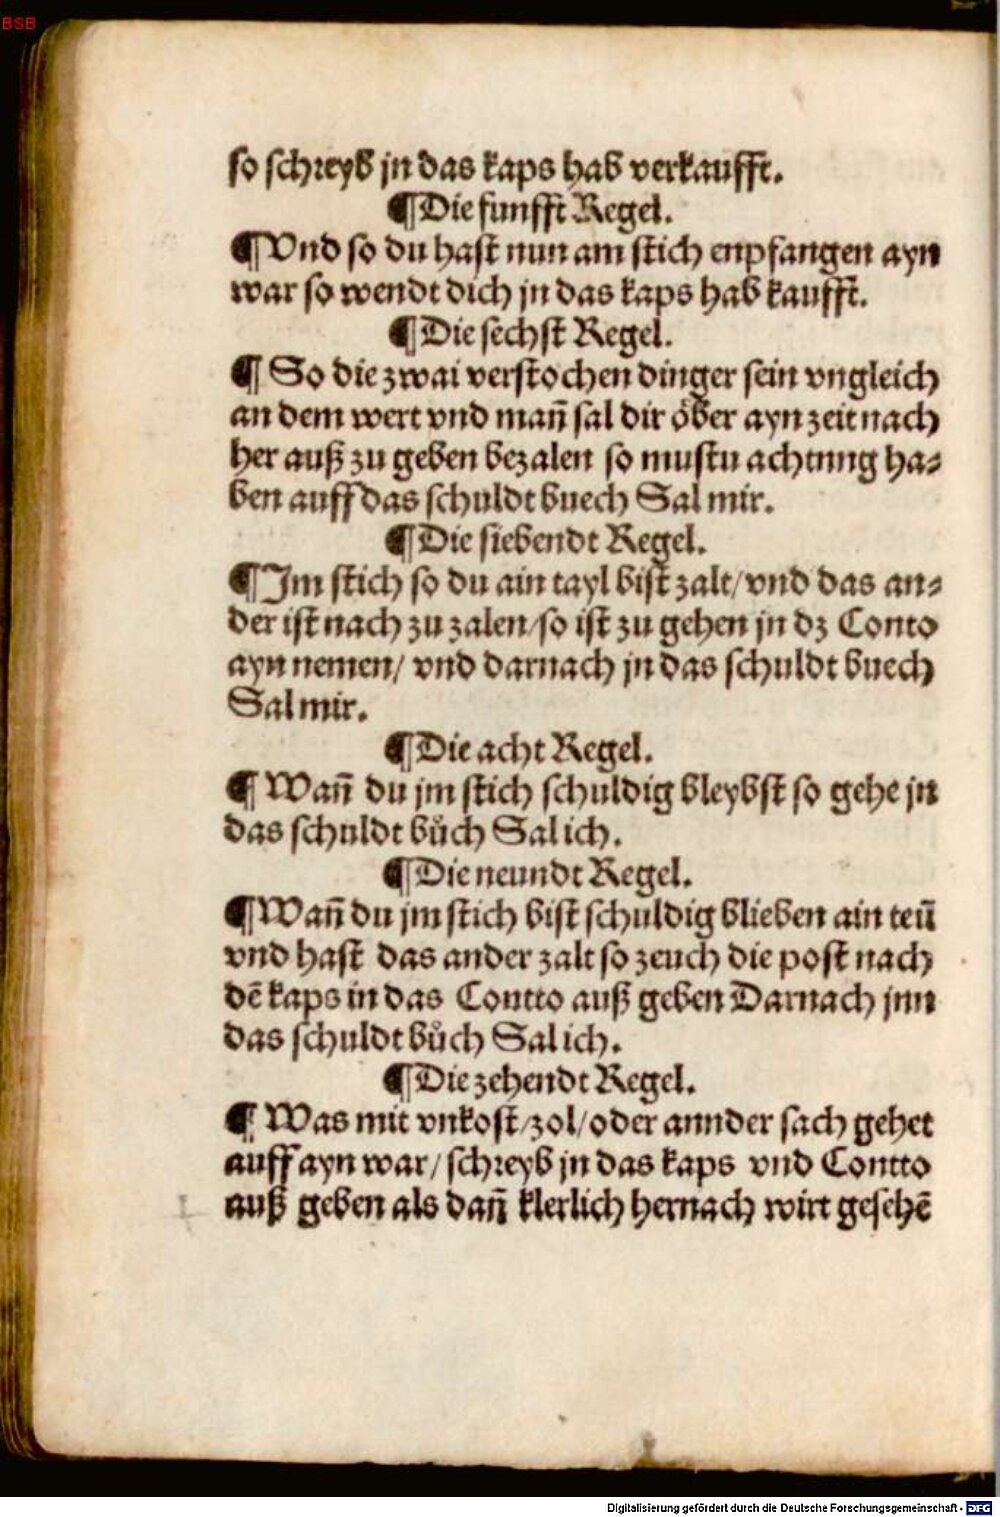 BSB
so schreyb jn das kaps hab verkaufft.
¶Die funfft Regel.
¶Vnd so du hast nun am stich enpfangen ayn
war so wendt dich jn das kaps hab kaufft.
¶Die sechst Regel.
¶ So die zwai verstochen dinger sein vngleich
an dem wert vnd mañ sal dir öber ayn zeit nach
her auß zu geben bezalen so mustu achtung ha⸗
ben auff das schuldt buech Sal mir.
¶Die siebendt Regel.
¶Jm stich so du ain tayl bist zalt/vnd das an⸗
der ist nach zu zalen/so ist zu gehen jn dz Conto
ayn nemen/ vnd darnach jn das schuldt buech
Sal mir.
¶Die acht Regel.
¶ Wañ du jm stich schuldig bleybst so gehe jn
das schuldt bůch Sal ich.
¶Die neundt Regel.
¶Wañ du jm stich bist schuldig blieben ain teil
vnd hast das ander zalt so zeuch die post nach
dẽ kaps in das Contto auß geben Darnach jnn
das schuldt bůch Sal ich.
¶Die zehendt Regel.
¶ Was mit vnkost/zol/oder annder sach gehet
auff ayn war/ schreyb jn das kaps vnd Contto
auß geben als dañ klerlich hernach wirt gesehẽ
Digitalisierung gefördert durch die Deutsche Forschungsgemeinschaft - DFG